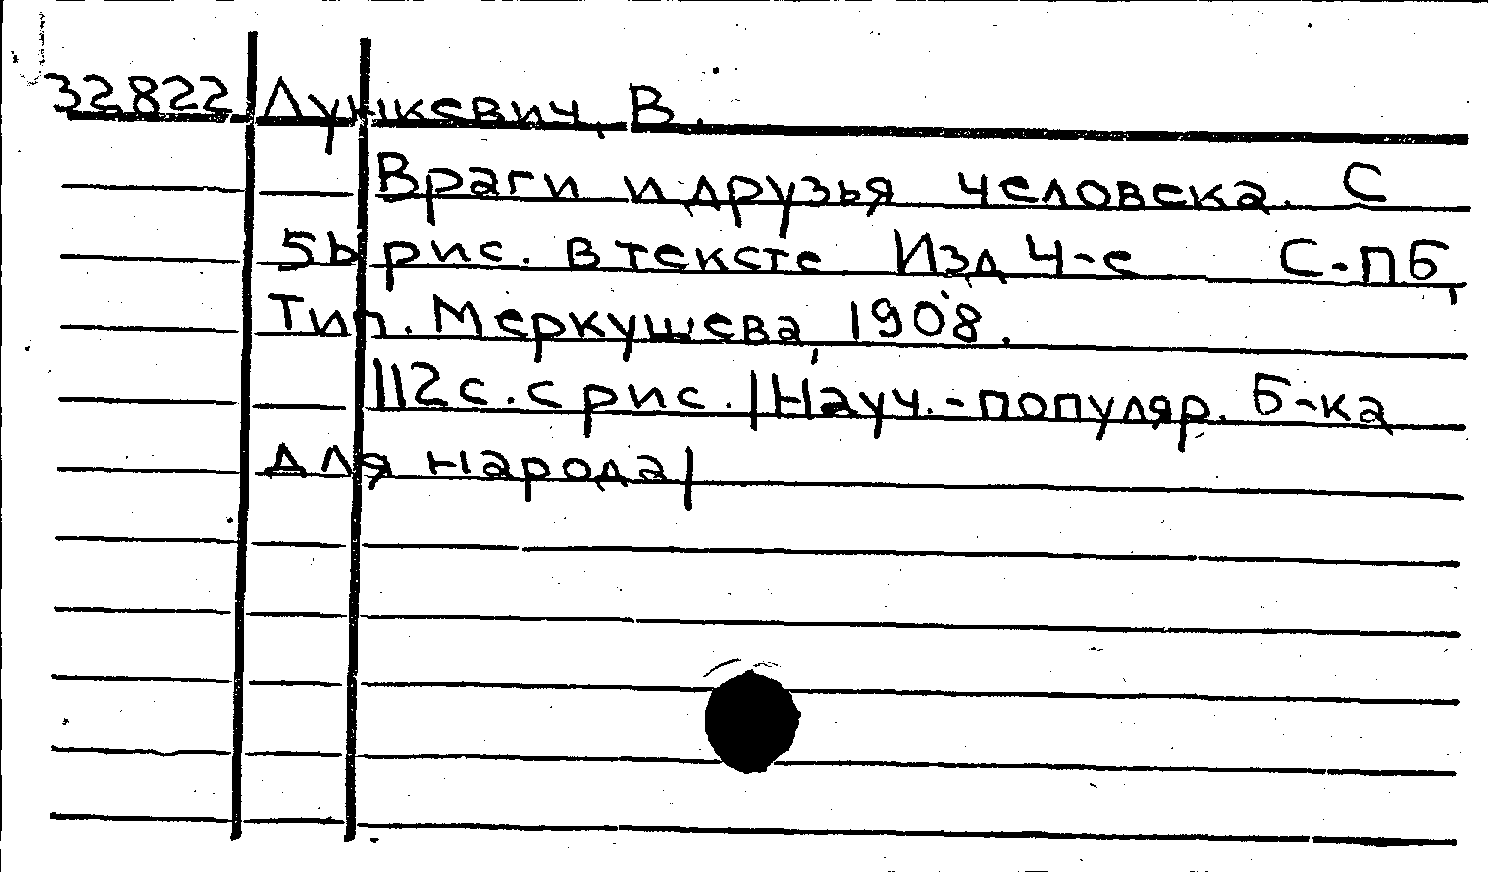 32822 Лункевич, В.
Враги и друзья человека. С
56 рис. в тексте Изд 4-е С-ПБ,
Тип. Меркушева, 1908.
112 с. с рис. |Науч.-популяр. Б-ка
для народа|